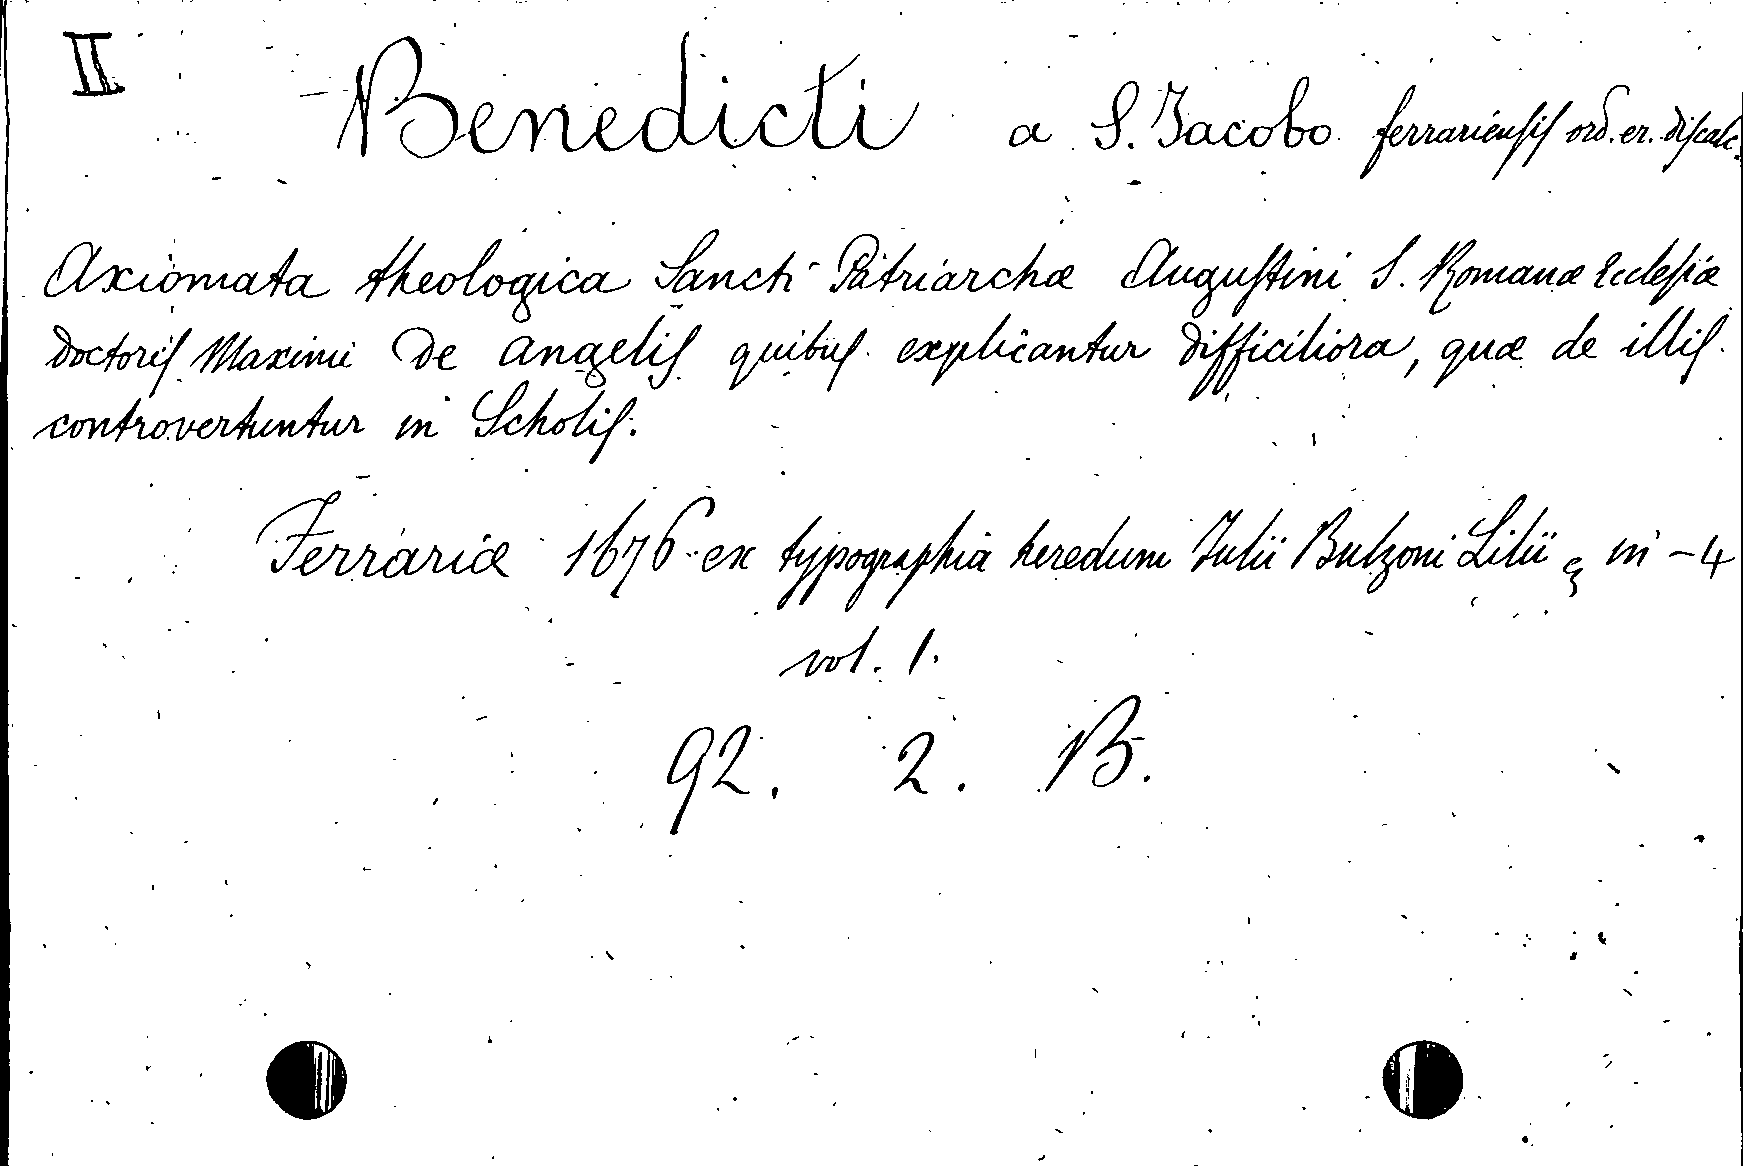 II
Benedicti a S. Jacobo ferrariensis ord. er. discalc.
Axiomata theologica Sancti Patriarchæ Augustini S. Romanæ Ecclesiæ
doctoris Maximi De angelis quibus explicantur difficiliora, quæ de illis
controvertuntur in Scholis.
Ferrariæ 1676 ex typographia heredum Julii Bulzoni Lilii in-4
vol. 1.
92. 2. B.